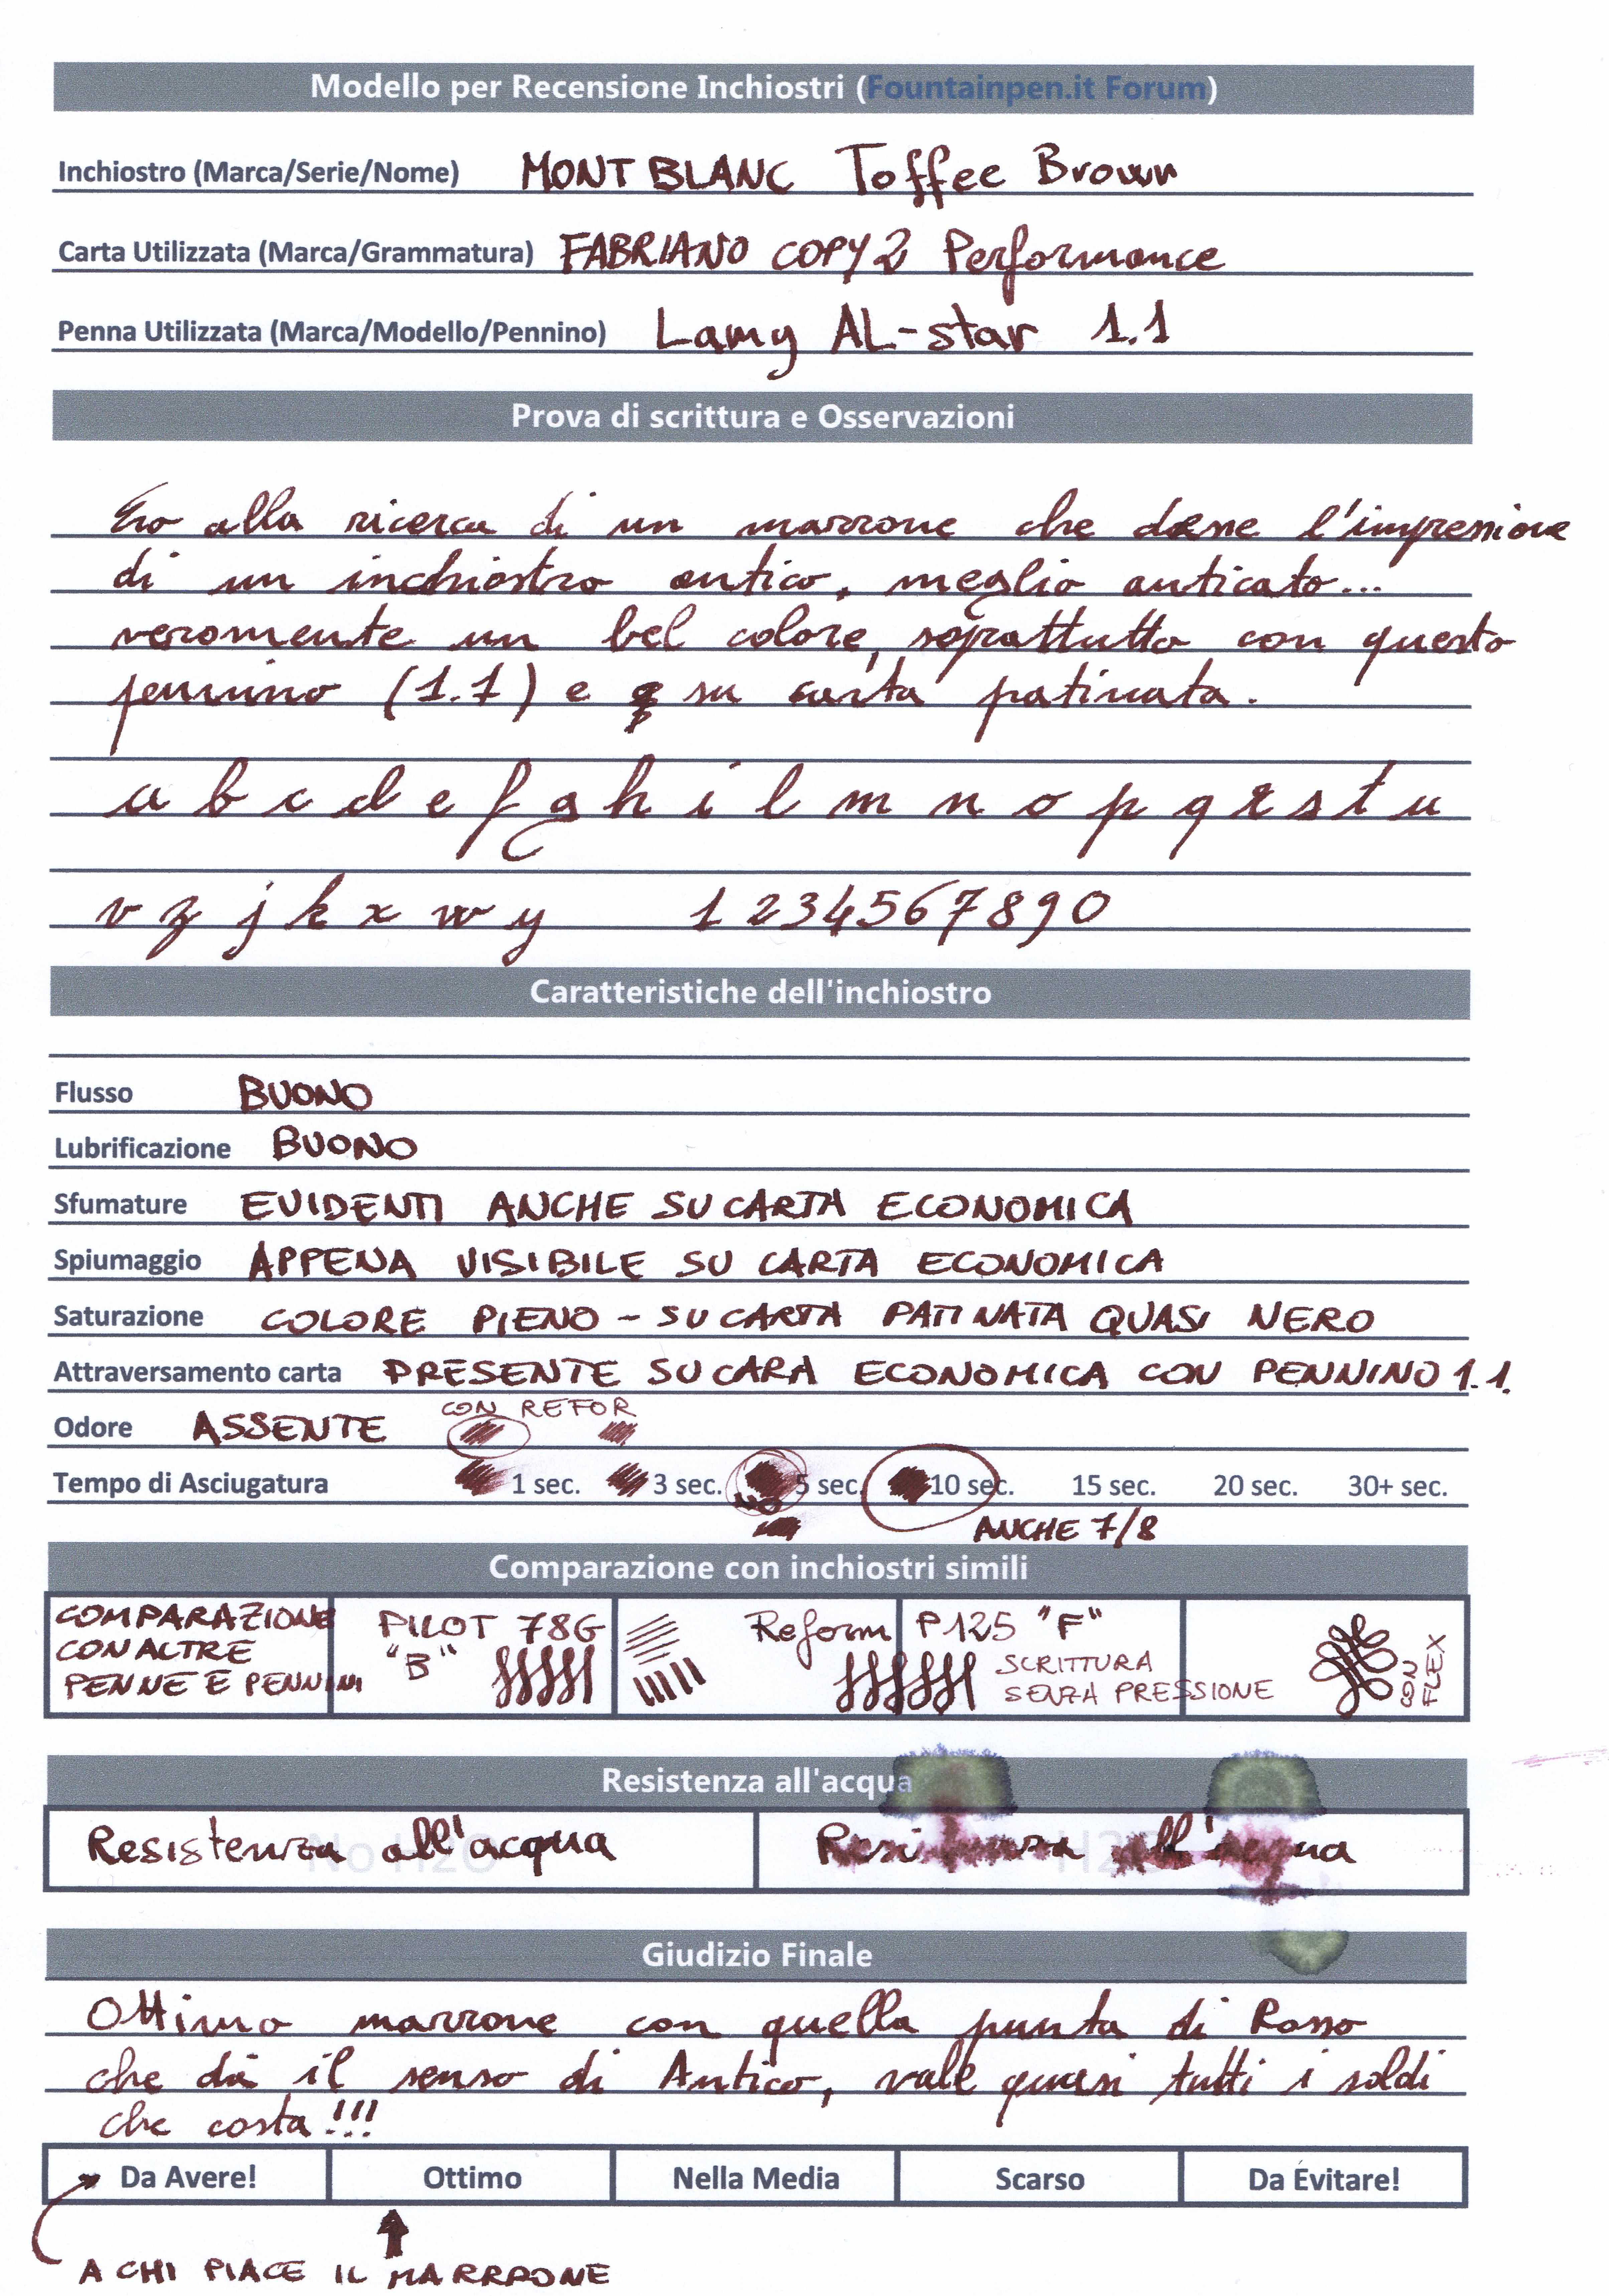 Modello per Recensione Inchiostri (Fountainpen.it Forum)
Inchiostro (Marca/Serie/Nome) MONT BLANC Toffee Brown
Carta Utilizzata (Marca/Grammatura) FABRIANO COPY2 Performance
Penna Utilizzata (Marca/Modello/Pennino) Lamy AL-star 1.1
Prova di scrittura e Osservazioni
Ero alla ricerca di un marrone che desse l'impressione
di un inchiostro antico, meglio anticato...
veramente un bel colore, soprattutto con questo
pennino (1.1) e su carta patinata.
a b c d e f g h i l m n o p q r s t u
v z j k x w y 1 2 3 4 5 6 7 8 9 0
Caratteristiche dell'inchiostro
Flusso BUONO
Lubrificazione BUONO
Sfumature EVIDENTI ANCHE SU CARTA ECONOMICA
Spiumaggio APPENA VISIBILE SU CARTA ECONOMICA
Saturazione COLORE PIENO - SU CARTA PATINATA QUASI NERO
Attraversamento carta PRESENTE SU CARA ECONOMICA CON PENNINO 1.1.
CON REFOR
Odore ASSENTE
Tempo di Asciugatura 1 sec. 3 sec. 5 sec. 10 sec. 15 sec. 20 sec. 30+ sec.
NO
ANCHE 7/8
Comparazione con inchiostri simili
COMPARAZIONE CON ALTRE PENNE E PENNINI
PILOT 78G "B"
Reform P125 "F"
SCRITTURA SENZA PRESSIONE
CON FLEX
Resistenza all'acqua
No H2O
Resistenza all'acqua
H2O
Resistenza all'acqua
Giudizio Finale
Ottimo marrone con quella punta di Rosso
che dà il senso di Antico, vale quasi tutti i soldi
che costa!!!
Da Avere! Ottimo Nella Media Scarso Da Evitare!
A CHI PIACE IL MARRRONE